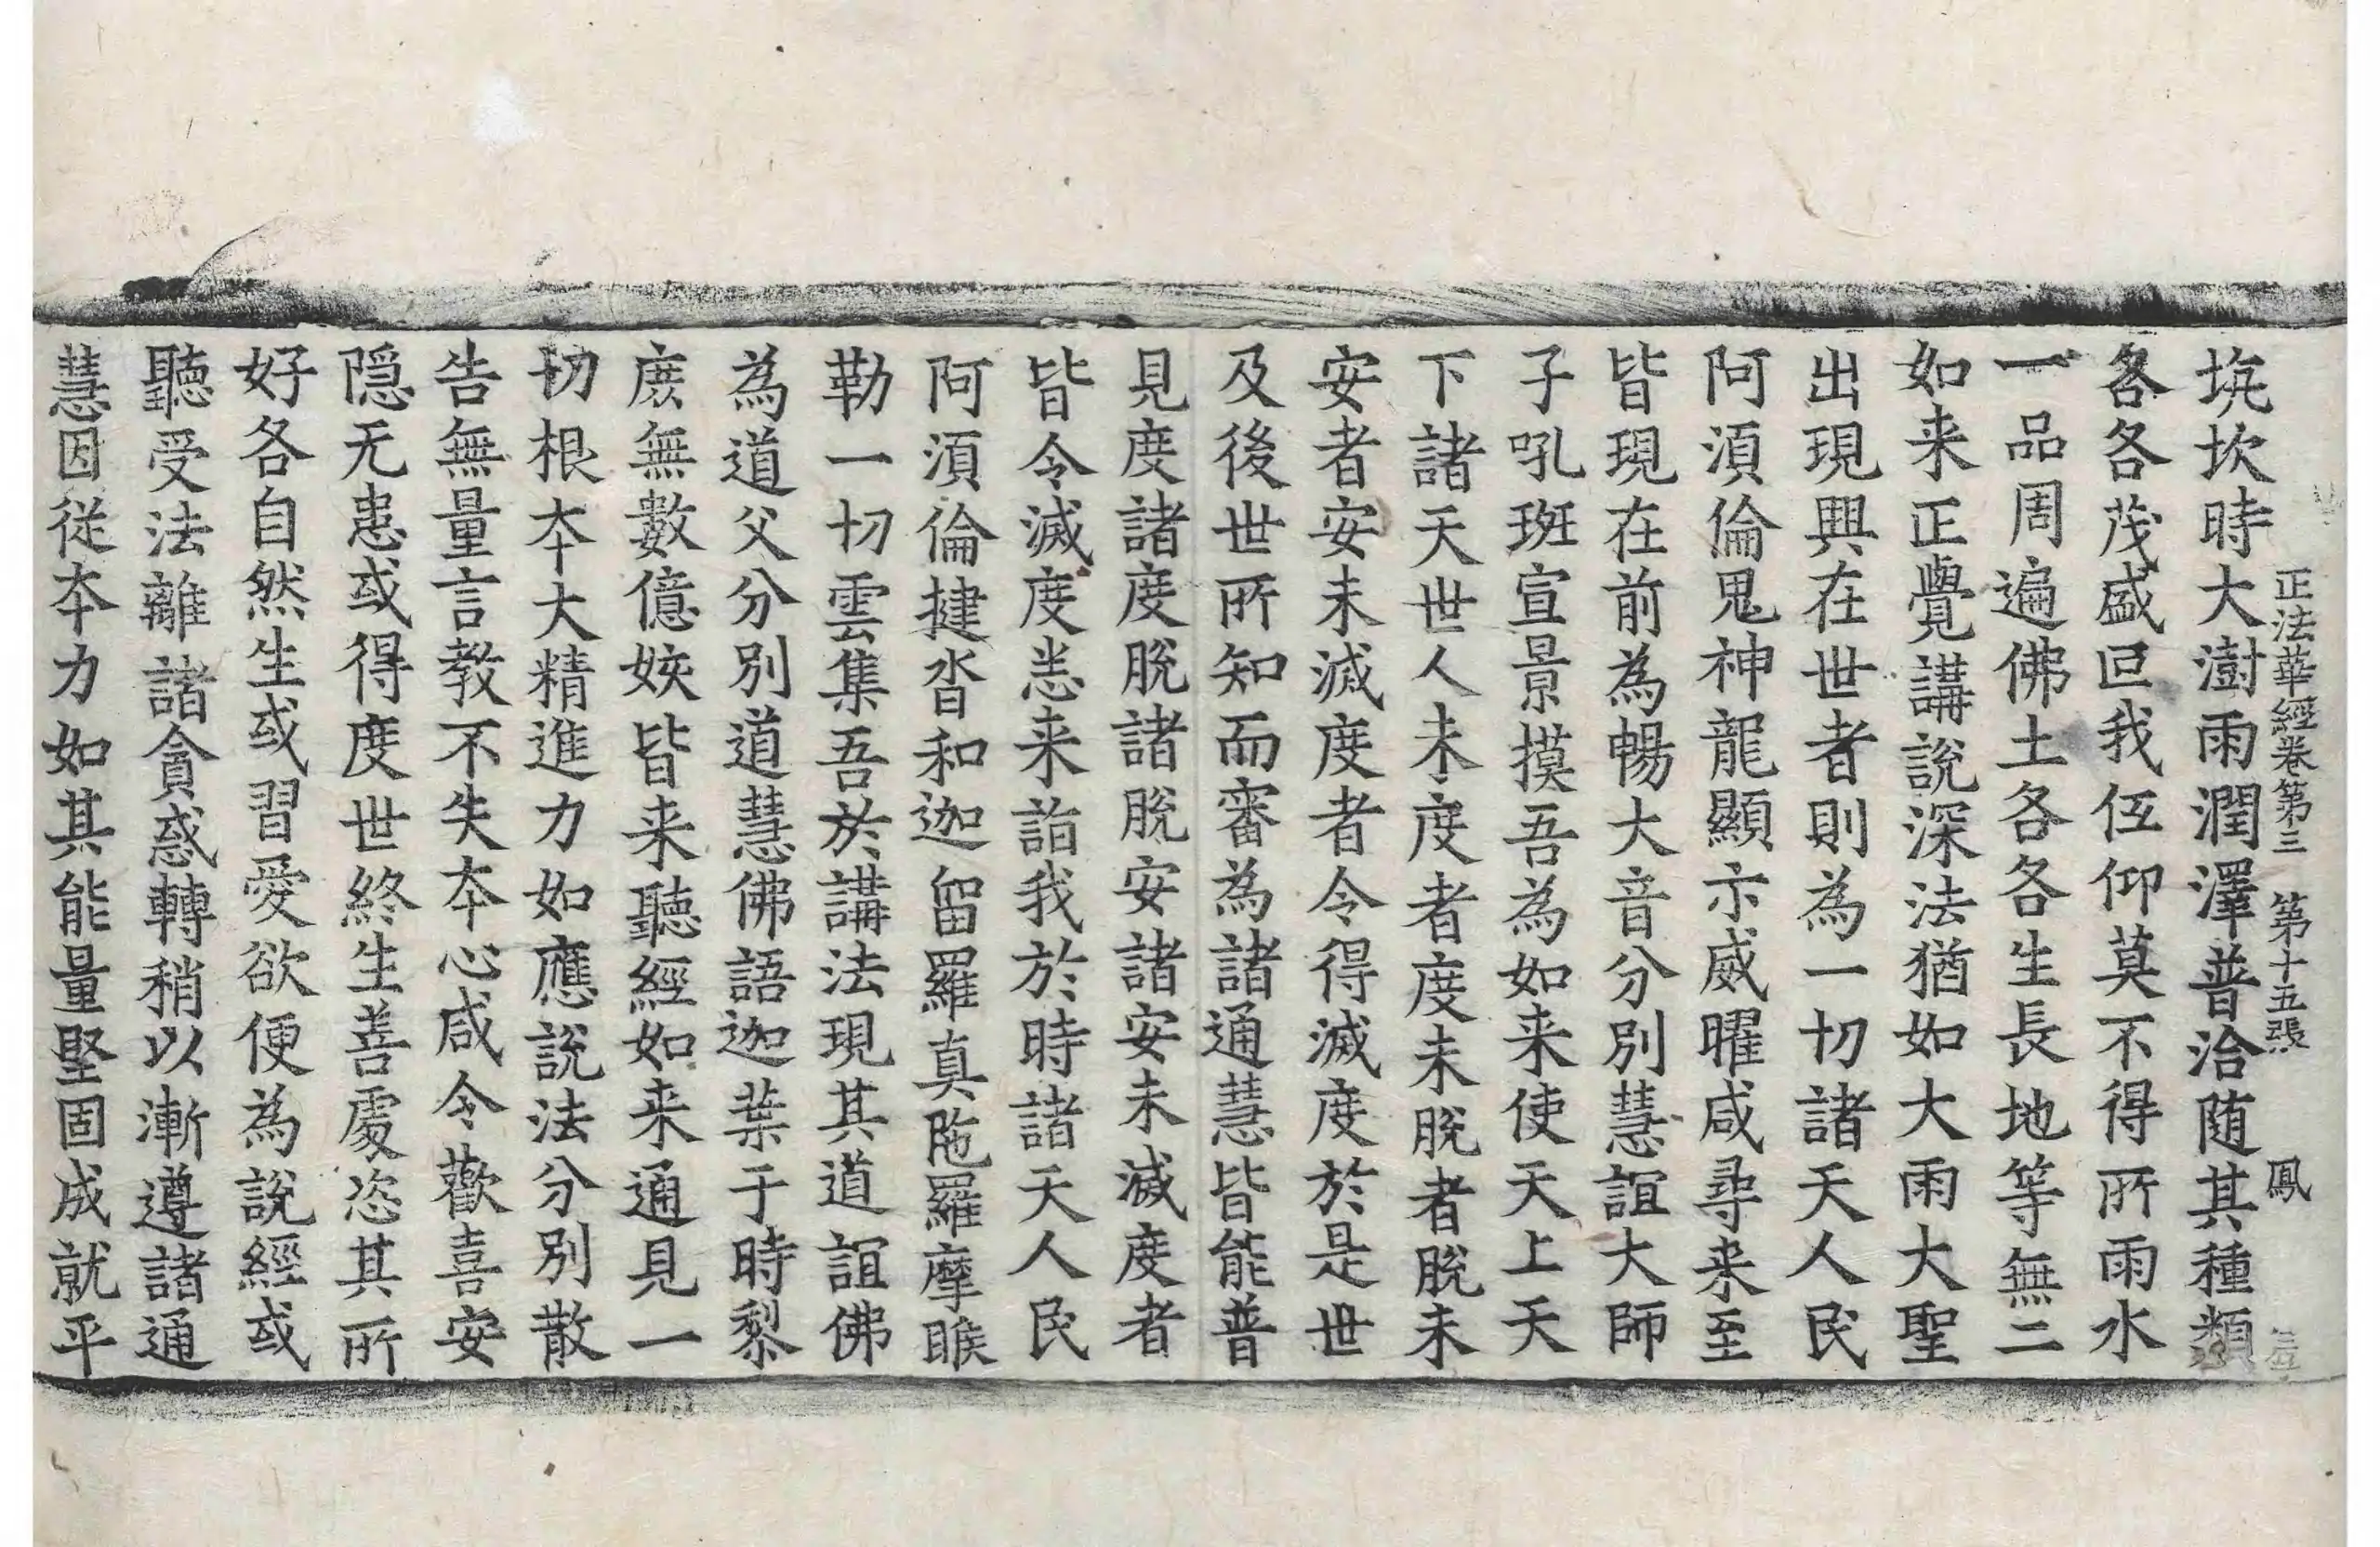 正法華經卷第三 第十五張 鳳
坑坎時大澍雨潤澤普洽随其種類
各各茂盛叵我仾仰莫不得所雨水
一品周遍佛土各各生長地等無二
如来正覺講說深法猶如大雨大聖
出現興在世者則為一切諸天人民
阿湏倫鬼神龍顯示威曜咸尋来至
皆現在前為暢大音分別慧誼大師
子吼班宣景摸吾為如来使天上天
下諸天世人未度者度未脫者脫未
安者安未滅度者令得滅度於是世
及後世所知而審為諸通慧皆能普
見度諸度脫諸脫安諸安未滅度者
皆令滅度恙来詣我於時諸天人民
阿湏倫揵沓和迦留羅真陁羅摩睺
勒一切雲集吾於講法現其道誼佛
為道父分別道慧佛語迦葉于時黎
庻無數億姟皆来聽經如来通見一
切根夲大精進力如應說法分別散
告無量言教不失夲心咸令歡喜安
隠无患或得度世終生善處恣其所
好各自然生或習愛欲便為說經或
聽受法離諸貪惑轉稍以漸遵諸通
慧因從夲力如其能量堅固成就平